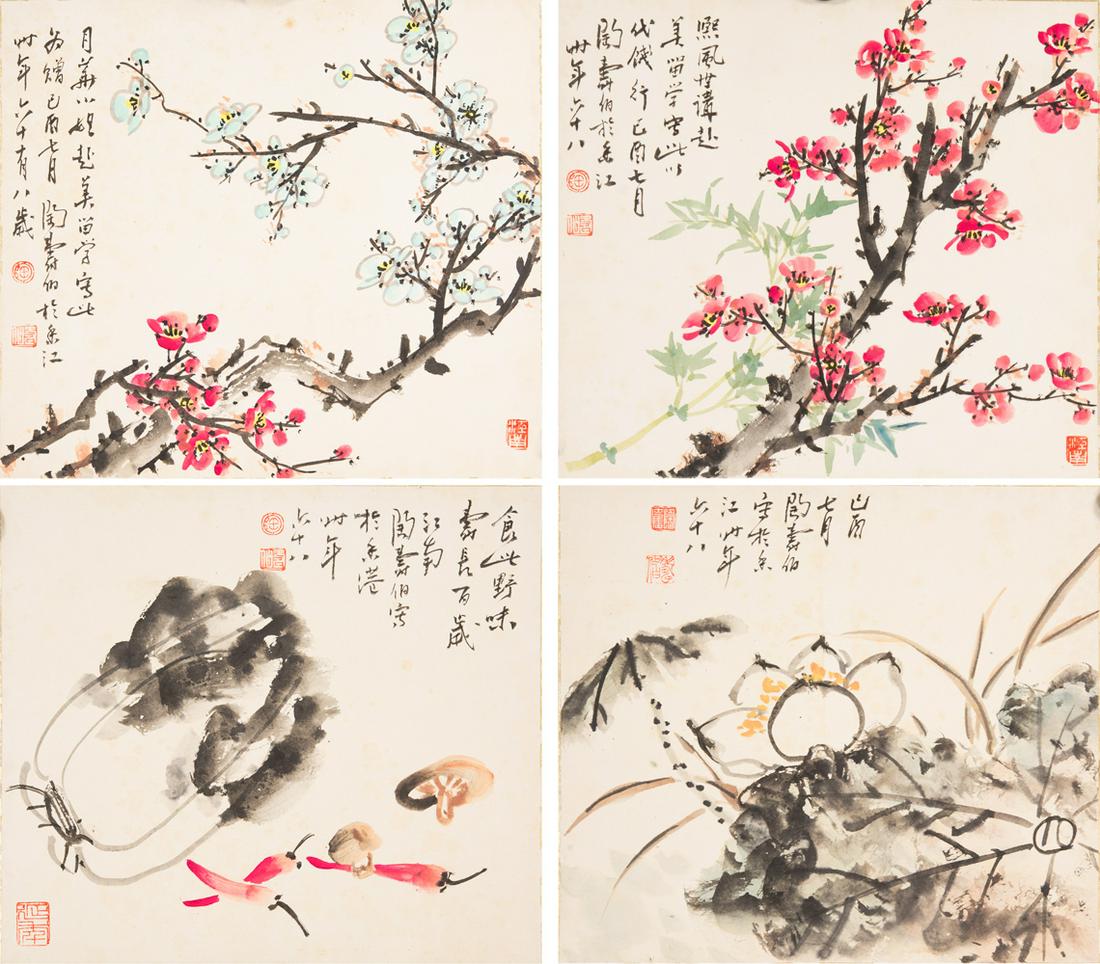 月華小姐赴美留学寫此
为贈己酉七月陶壽伯於香江
卅年六十有八歲
熙風世講赴
美留学写此以
代餞行己酉七月
陶壽伯於香江
卅年六十八
食此野味
壽長百歲
江南
陶壽伯寫
於香港
卅年
六十八
己酉
七月
陶壽伯
寫於香
江卅年
六十八